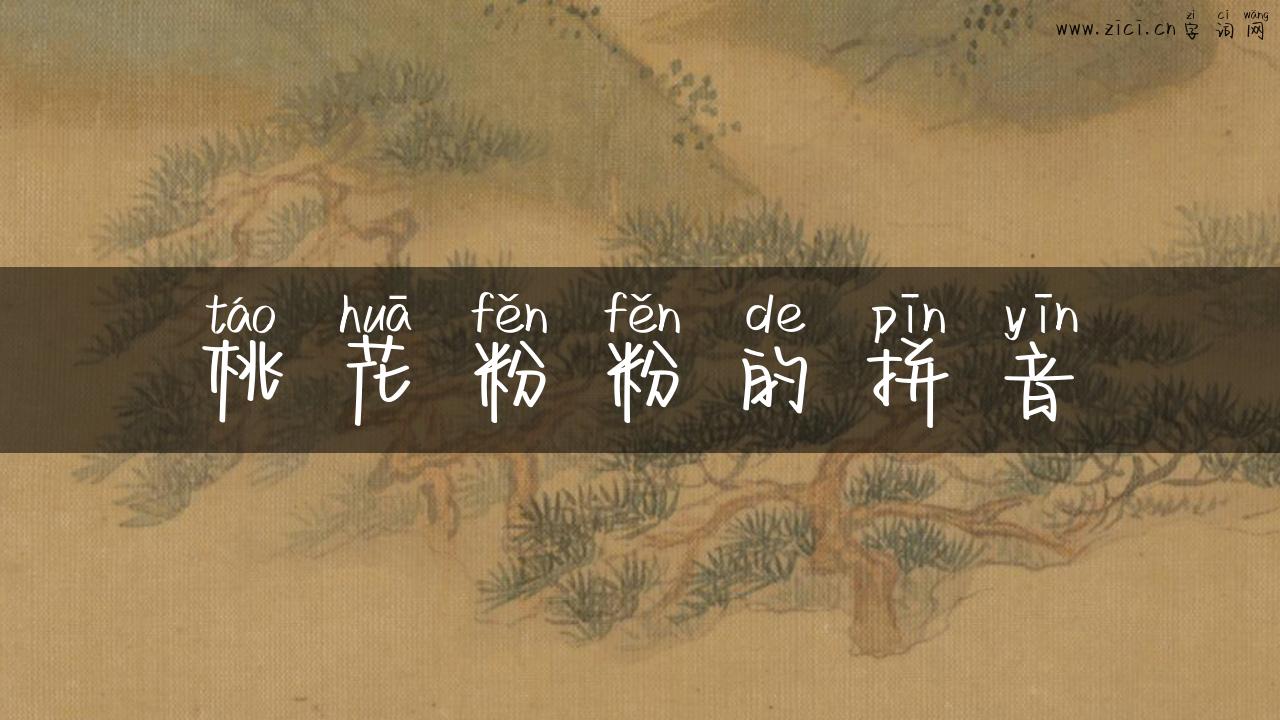 zì cí wǎng
www.zici.cn 字词网
táo huā fěn fěn de pīn yīn
桃花粉粉的拼音